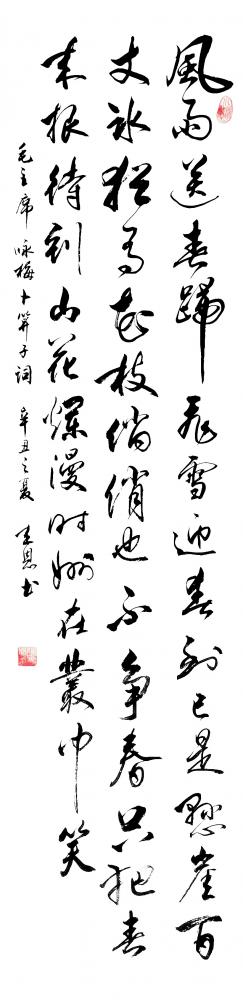 風雨送春歸飛雪迎春到已是懸崖百
丈冰猶有花枝俏俏也不争春只把春
來报待到山花爛漫时她在叢中笑
毛主席咏梅卜算子词 辛丑之夏 恩书